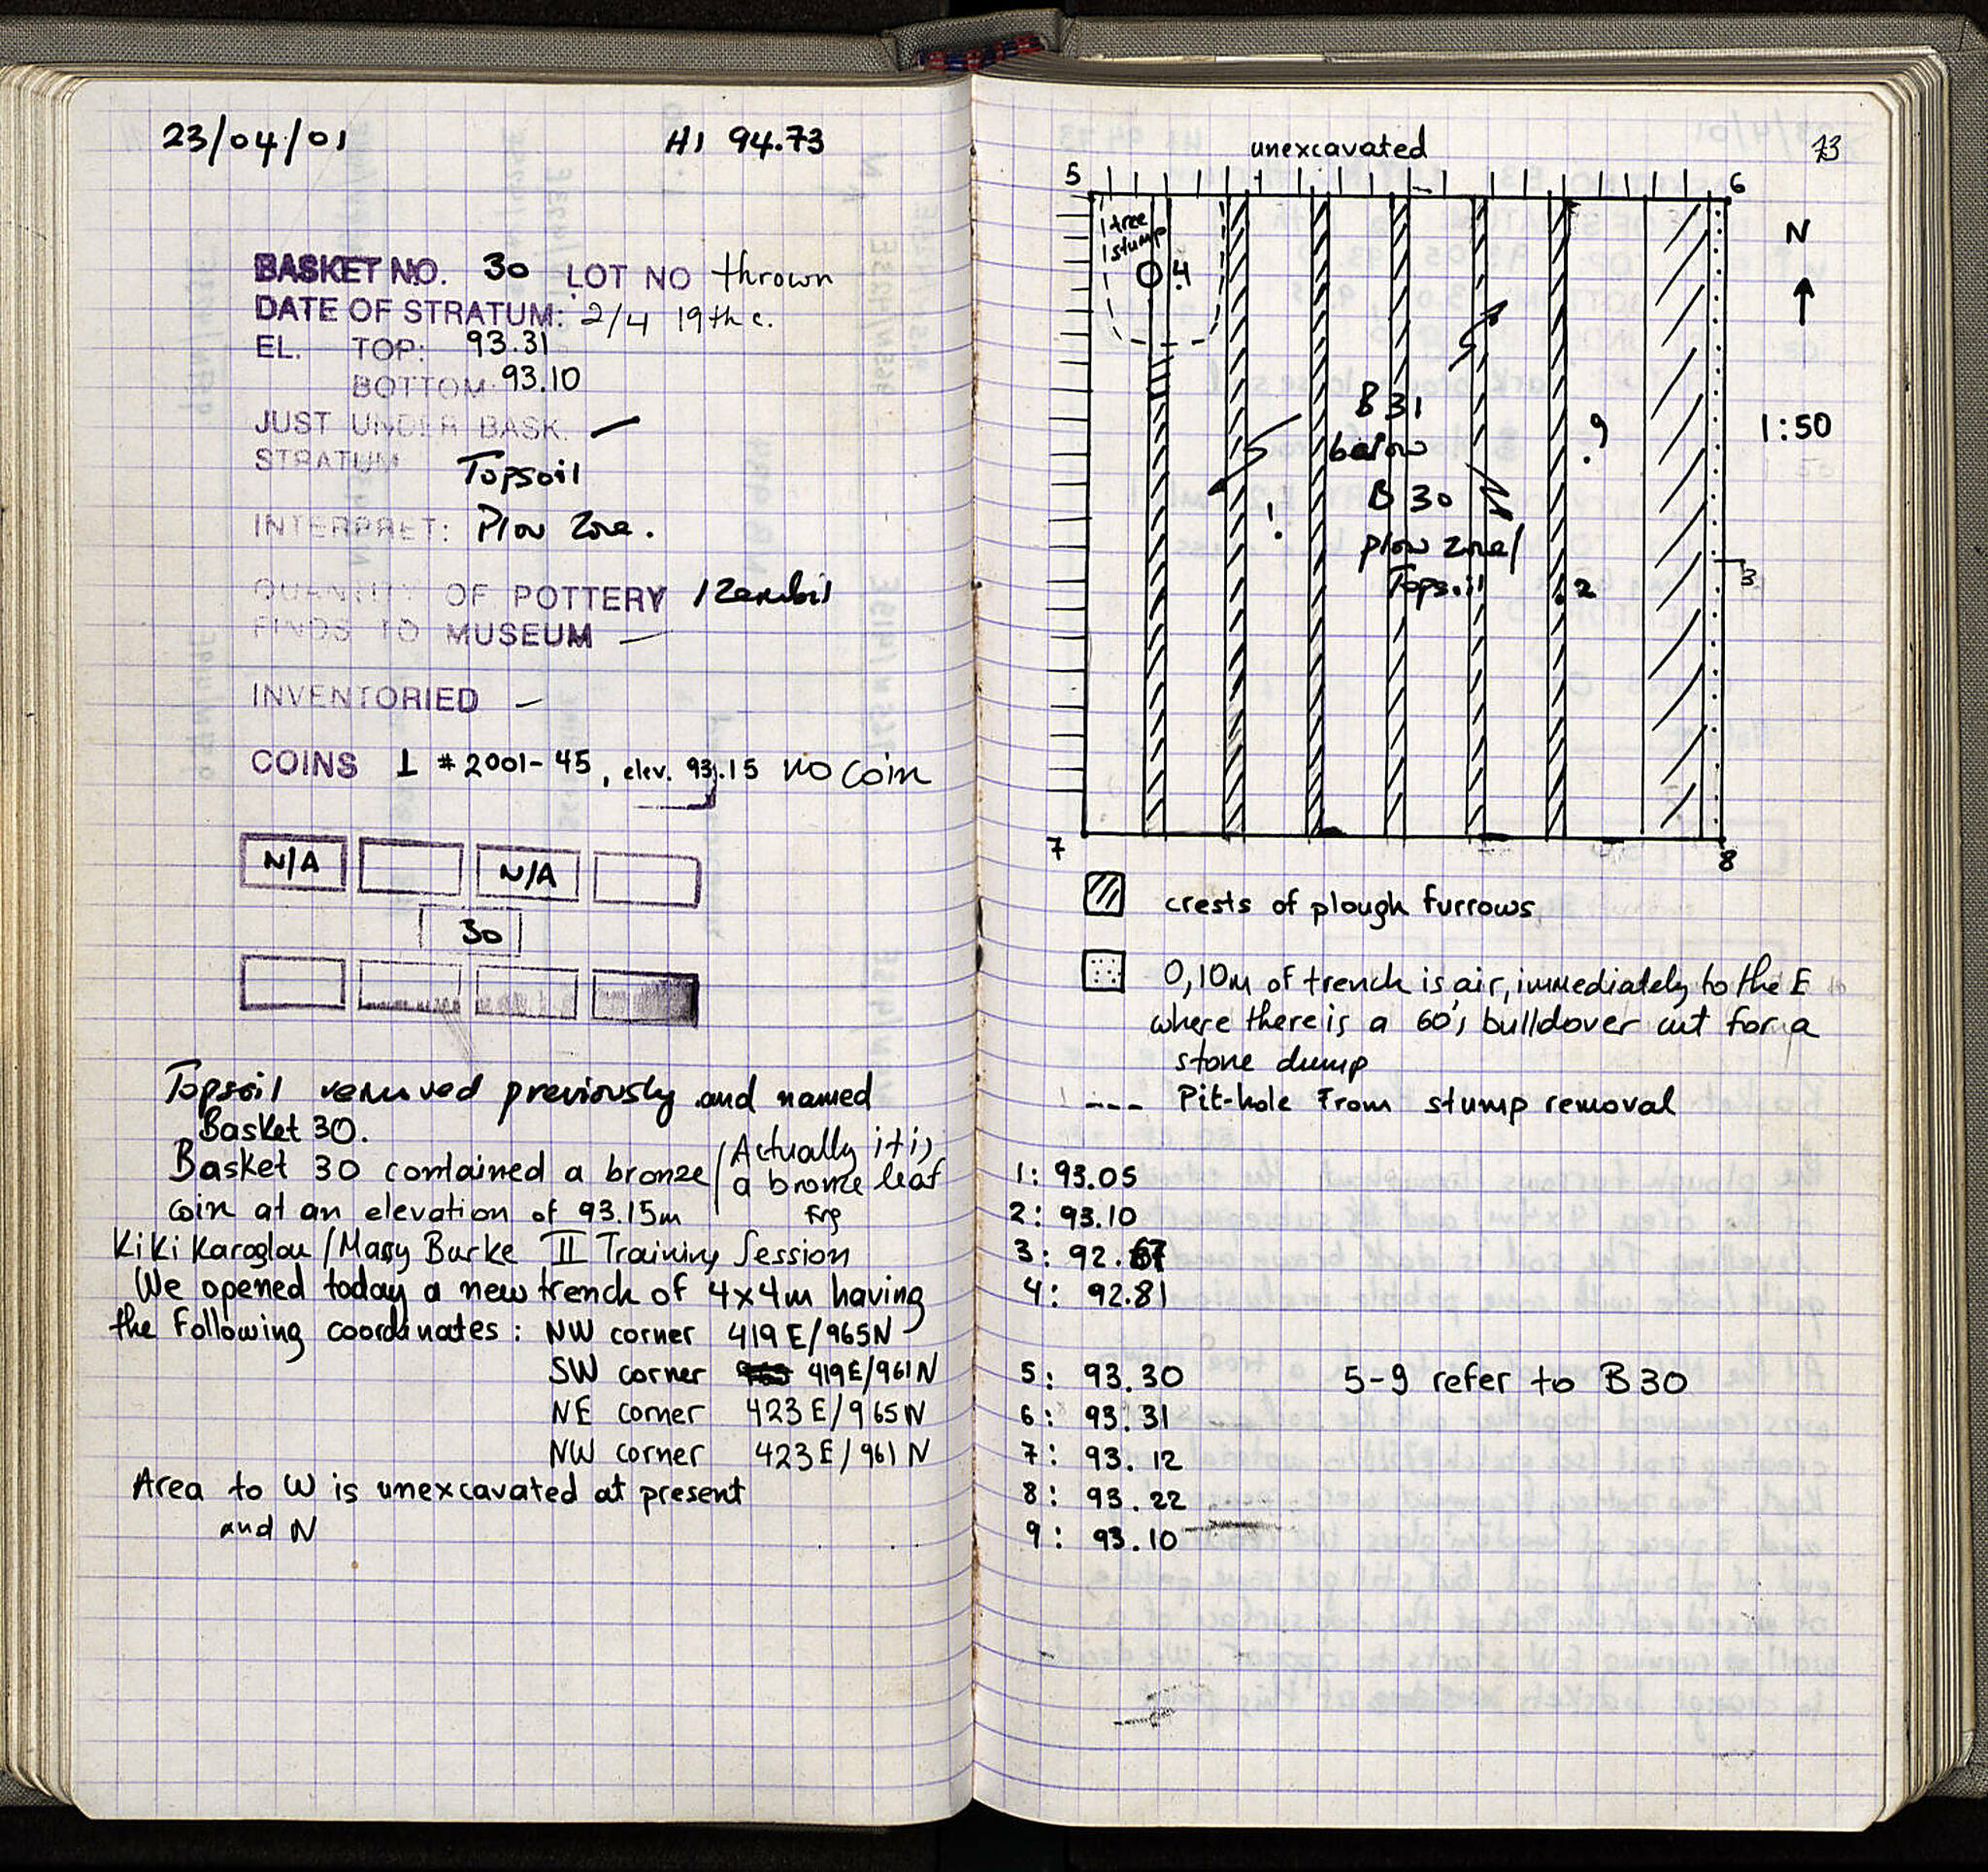 23/04/01
HI 94.73
BASKET NO. 30 LOT NO thrown
DATE OF STRATUM: 2/4 19th c.
EL. TOP: 93.31
BOTTOM 93.10
JUST UNDER BASK. —
STRATUM Topsoil
INTERPRET: Plow Zone.
QUANTITY OF POTTERY 1 Zembil
FINDS TO MUSEUM —
INVENTORIED –
COINS 1 # 2001-45, elev. 93.15 no coin
N/A N/A
30
Topsoil removed previously and named
Basket 30.
Basket 30 contained a bronze
coin at an elevation of 93.15m
Actually it is
a bronze leaf
frg
Kiki Karoglou / Mary Burke II Training Session
We opened today a new trench of 4x4m having
the following coordinates: NW corner 419 E/965N
SW corner 419E/961N
NE corner 423 E/965N
NW corner 423 E/961 N
Area to W is unexcavated at present
and N
73
unexcavated
5
6
tree
stump
4
N
1:50
B 31
below
B 30
plow zone/
Topsoil
9
1
2
3
7
8
crests of plough furrows
0,10m of trench is air, immediately to the E
where there is a 60's bulldover cut for a
stone dump
--- Pit-hole From stump removal
1: 93.05
2: 93.10
3: 92.67
4: 92.81
5: 93.30
5-9 refer to B30
6: 93.31
7: 93.12
8: 93.22
9: 93.10